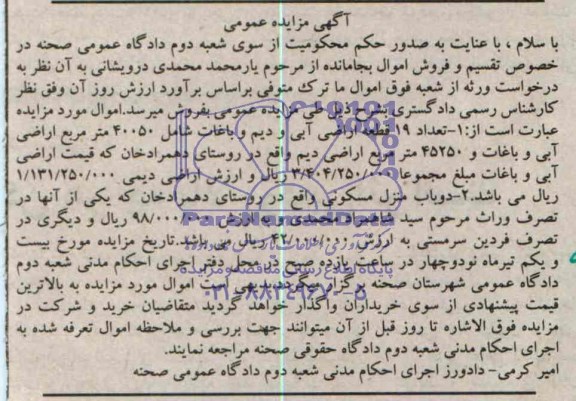 آگهی مزایده عمومی
با سلام ، با عنایت به صدور حکم محکومیت از سوی شعبه دوم دادگاه عمومی صحنه در
خصوص تقسیم و فروش اموال بجامانده از مرحوم یارمحمد محمدی درویشانی به آن نظر به
درخواست ورثه از شعبه فوق اموال ما ترک متوفی براساس برآورد ارزش روز آن وفق نظر
کارشناس رسمی دادگستری بشرح ذیل طی مزایده عمومی بفروش میرسد.اموال مورد مزایده
عبارت است از:۱-تعداد ۱۹ قطعه اراضی آبی و دیم و باغات شامل ۴۰۰۵۰ متر مربع اراضی
آبی و باغات و ۴۵۲۵۰ متر مربع اراضی دیم واقع در روستای دهمرادخان که قیمت اراضی
آبی و باغات مبلغ مجموعا ۳/۴۰۴/۲۵۰/۰۰۰ ریال و ارزش اراضی دیمی ۱/۱۳۱/۲۵۰/۰۰۰
ریال می باشد.۲-دوباب منزل مسکونی واقع در روستای دهمرادخان که یکی از آنها در
تصرف وراث مرحوم سید شاهمراد احمدی به ارزش ۹۸/۰۰۰/۰۰۰ ریال و دیگری در
تصرف فردین سرمستی به ارزش ریال می باشد.تاریخ مزایده مورخ بیست
و یکم تیرماه نودوچهار در ساعت یازده صبح در محل دفتر اجرای احکام مدنی شعبه دوم
دادگاه عمومی شهرستان صحنه برگزار میگردد.بدیهی است اموال مورد مزایده به بالاترین
قیمت پیشنهادی از سوی خریداران واگذار خواهد گردید متقاضیان خرید و شرکت در
مزایده فوق الاشاره تا روز قبل از آن میتوانند جهت بررسی و ملاحظه اموال تعرفه شده به
اجرای احکام مدنی شعبه دوم دادگاه حقوقی صحنه مراجعه نمایند.
امیر کرمی- دادورز اجرای احکام مدنی شعبه دوم دادگاه عمومی صحنه
ParsNamadData
پایگاه اطلاع رسانی مناقصه و مزایده